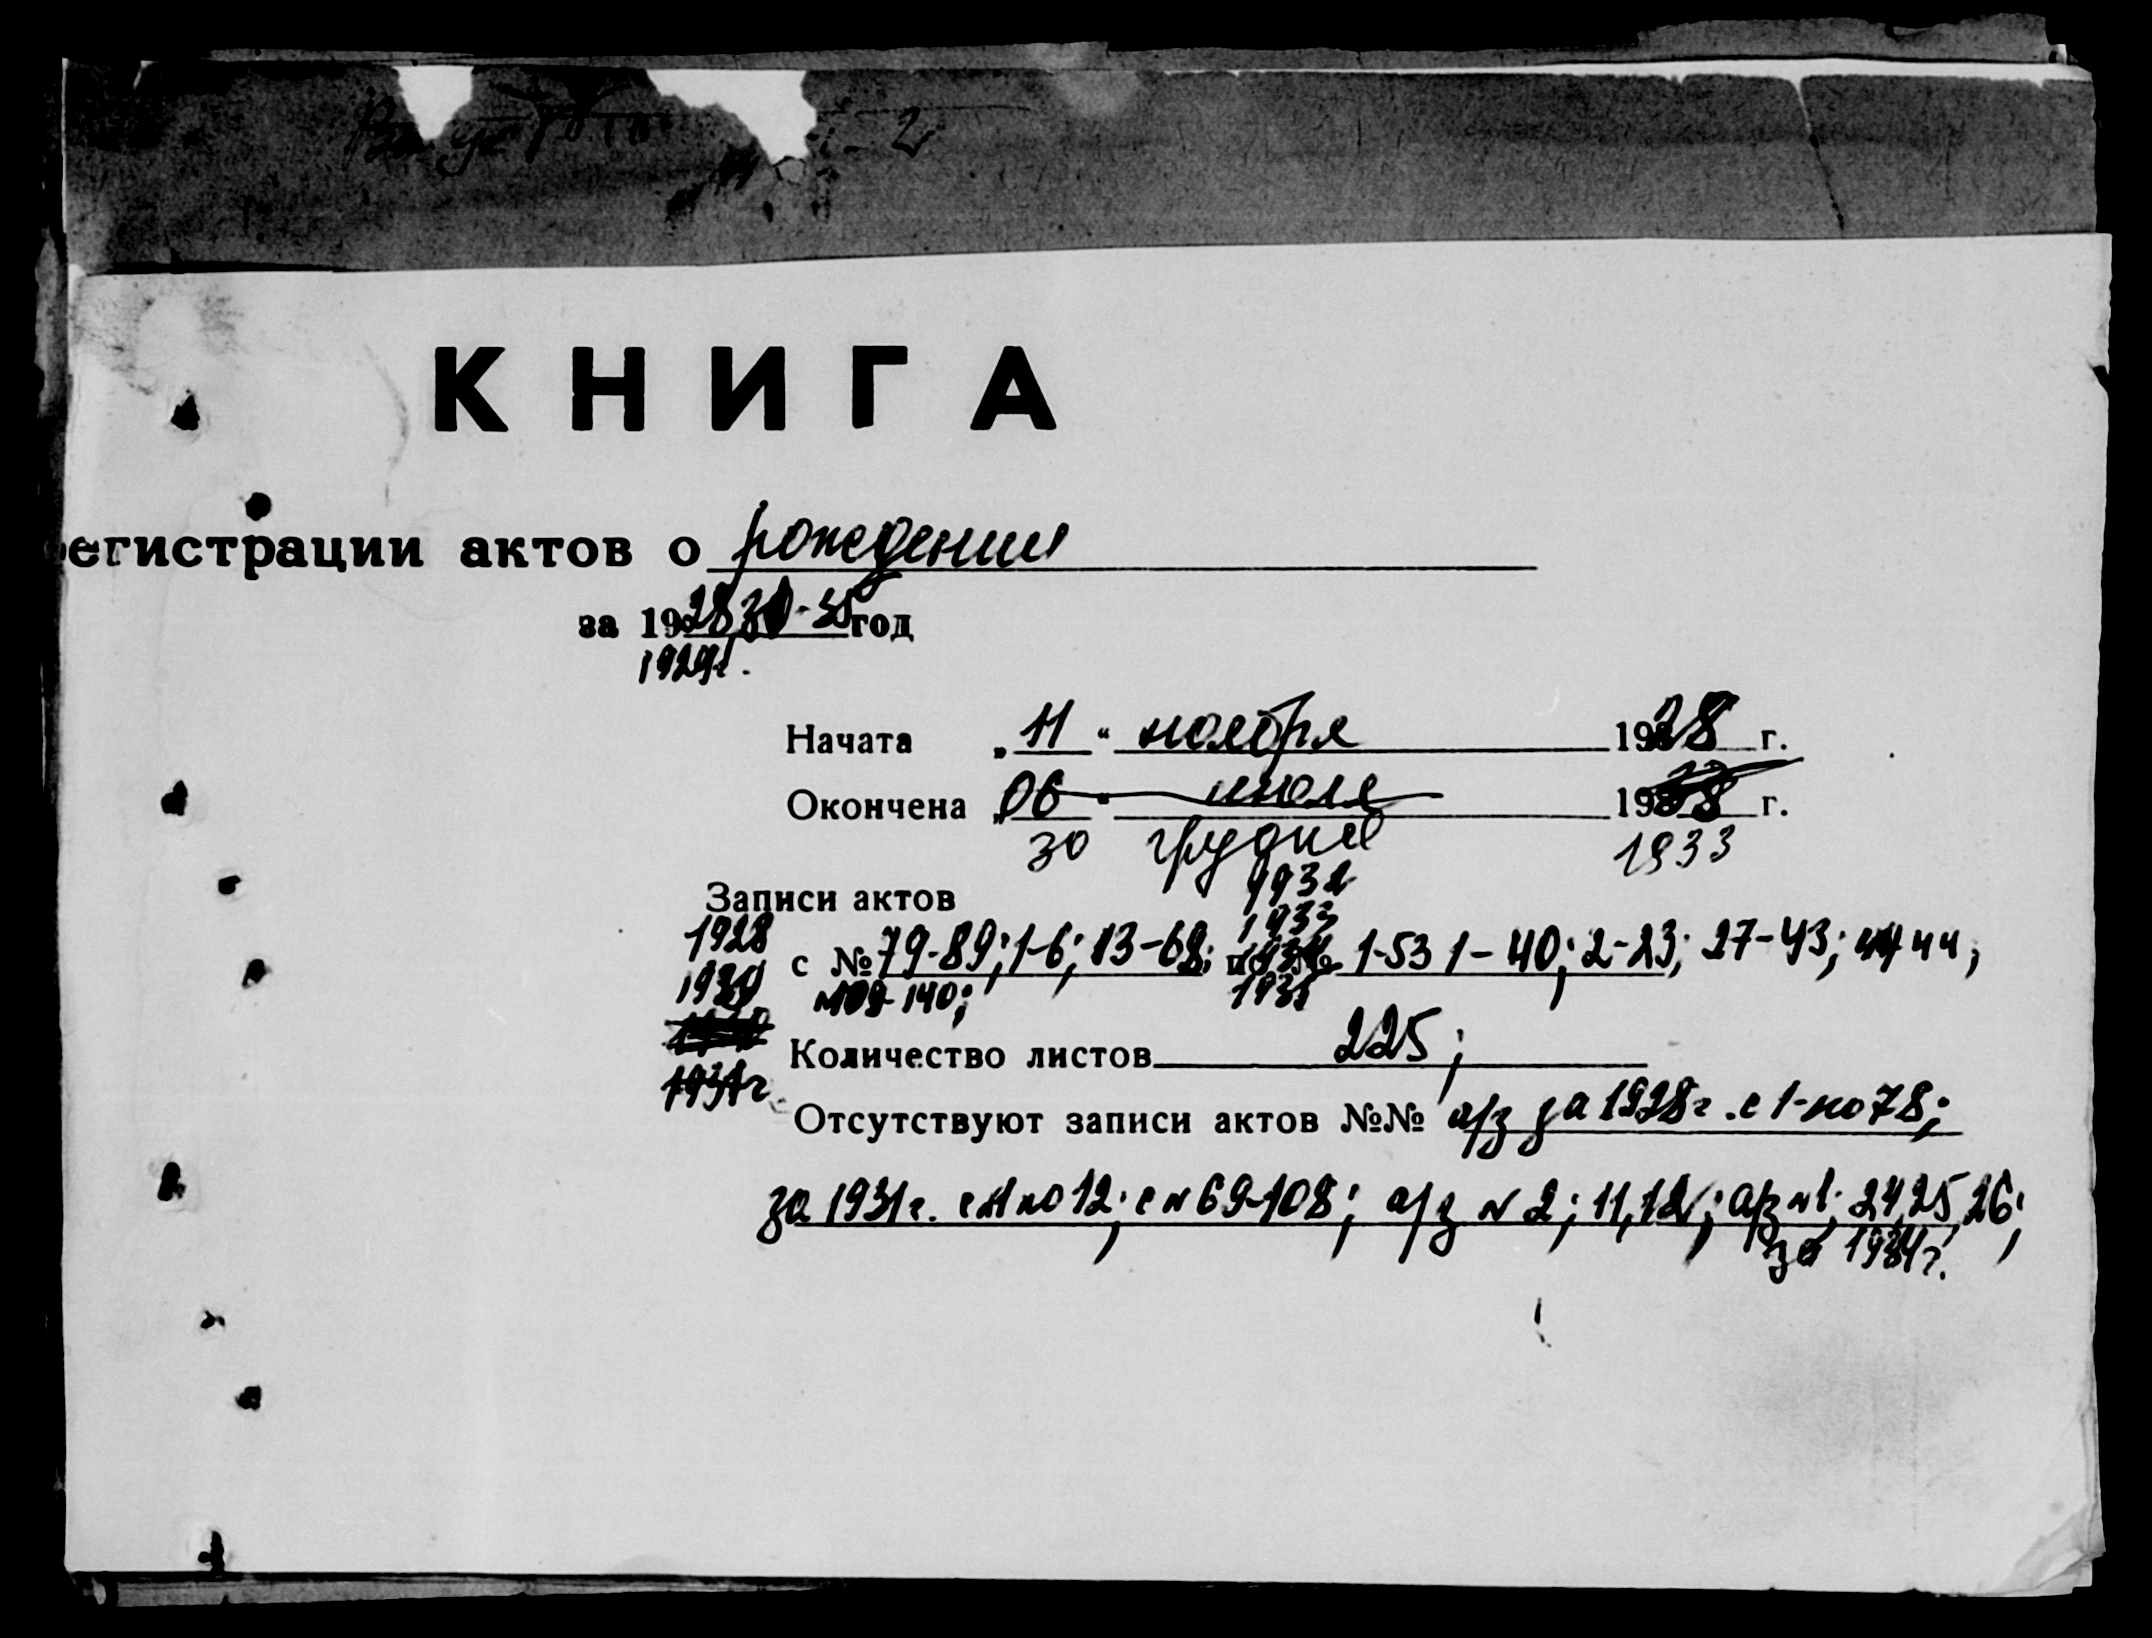 КНИГА
регистрации актов о рождении
за 1928,31-35 год
1929г.
Начата „11“ ноября 1928 г.
Окончена „06“ июля 19 8 г.
30 грудня 1933
Записи актов 1932
1928 1933
с № 79-89; 1-6; 13-68; 1934 1-53 1-40; 2-23; 27-43; 44;
1929 №109-140; 1935
Количество листов 225;
1931г
Отсутствуют записи актов №№ а/з за 1928г. с 1-по 78;
за 1931г. с №1 по 12; с №69-108; а/з №2; 11,12; а/з №1; 24,25,26;
за 1934г.